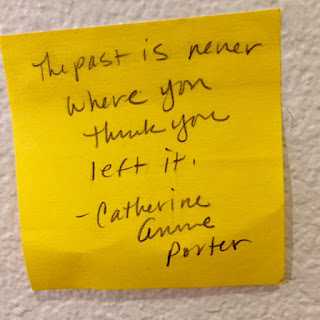 The past is never
where you
think you
left it.
- Catherine
Anne
Porter